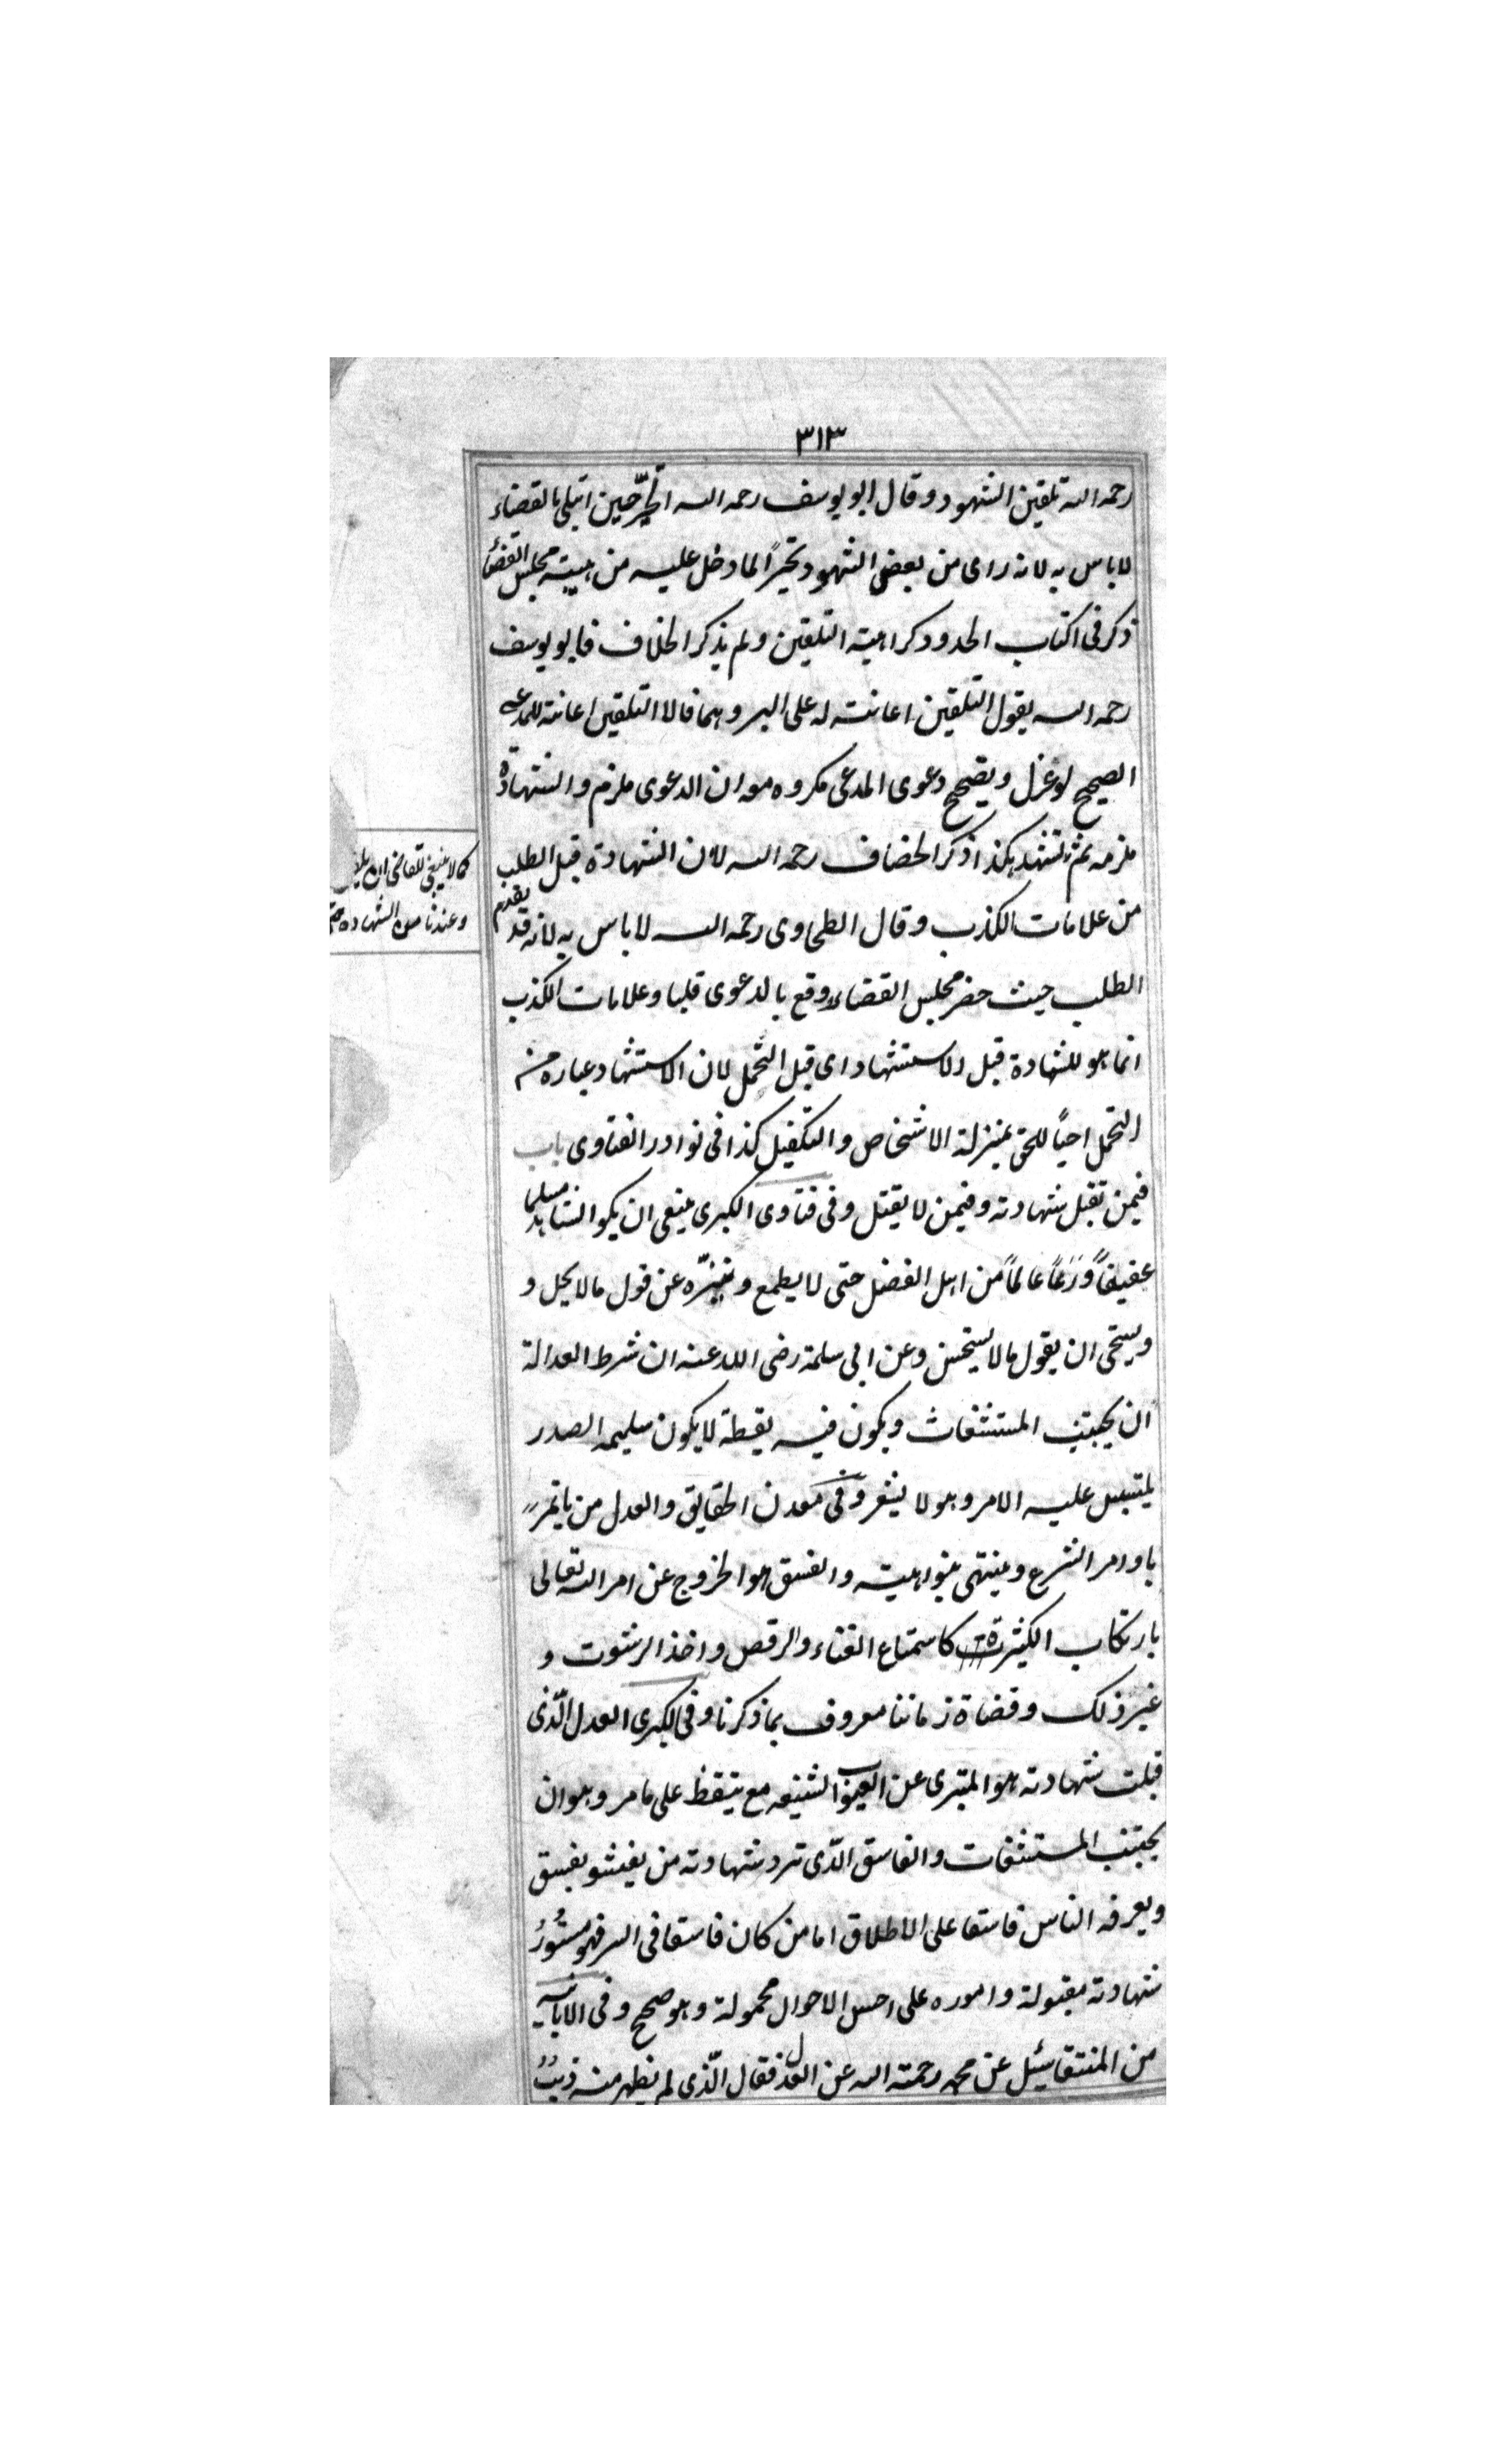 ٣١٣
رحمه الله تلقين الشهود وقال ابو يوسف رحمه الله حين ابتلى بالقضاء
لا باس به لانه راى من بعض الشهود تحيرًا لما دخل عليه من هيبته مجلس القضاء
ذكر فى اكتاب الحدود كراهية التلقين ولم يذكر الخلاف فابو يوسف
رحمه الله يقول التلقين اعانته له على البر وهما قالا التلقين اعانة للمدعى
الصحيح لو عزل ويصحح دعوى المدعى مكروه ان الدعوى ملزم والشهادة
ملزمه ثم تشهد هكذا ذكر الخصاف رحمه الله لان الشهادة قبل الطلب
من علامات الكذب وقال الطحاوى رحمه الله لا باس به لانه قد يقدم
الطلب حيث حضر مجلس القضاء وقع بالدعوى قلبا وعلامات الكذب
انما هو للشهادة قبل الاستشهاد اى قبل التحمل لان الاستشهاد عباره من
التحمل احيًا للحق بمنزلة الاشخاص والتكفيل كذا فى نوادر الفتاوى باب
فيمن تقبل شهادته وفيمن لا يقتل وفى فتاوى الكبرى ينبغى ان يكو الشاهد مسلما
عفيفاً وَرَعاً عالماً من اهل الفضل حتى لا يطمع و يتنزّه عن قول مالا يحل و
ويستحى ان يقول مالا يستحسن وعن ابى سلمة رضى الله عنه ان شرط العدالة
ان يجتنب المستشفات ويكون فيه يقطة لا يكون سليمه الصدر
يلتبس عليه الامر وهو لا يشعر وفى معدن الحقايق والعدل من ياتمر
باوامر الشرع وينتهى بنواهيته والفسق هو الخروج عن امر الله تعالى
بارتكاب الكثيرة كاستماع الغناء والرقص واخذ الرشوت و
غير ذلك وقضاة زماننا معروف بما ذكرنا وفى الكبرى العدل الّذى
قبلت شهادته هو المتبرى عن العيوب الشنيعه مع يتقظ على ما مر وهو ان
يجتنب المستشفات والفاسق الذّى ترد شهادته من يفشو بفسق
ويعرفه الناس فاسقا على الاطلاق اما من كان فاسقا فى السر فهو مستُورُ
شهادته مقبولة واموره على احسن الاحوال محمولة وهو صحيح وفى الابانه
من المنتقا سئل عن محمد رحمته الله عن العدل فقال الّذى لم نظهر منه ذيبٌ
كما لا ينبغى للقاضى ان
وعندنا الشهاده